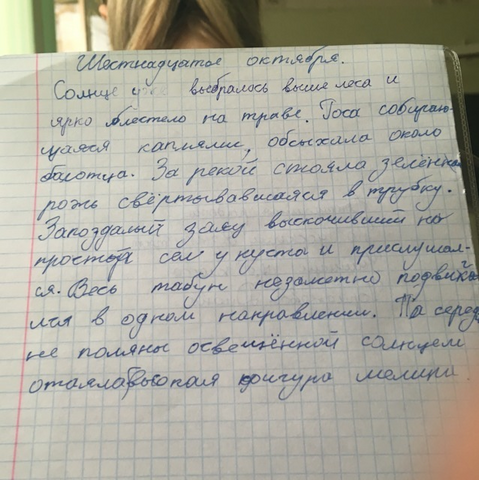 Шестнадцатое октября.
Солнце уже выбралось выше леса и
ярко блестело на траве. Роса собираю-
щаяся каплями, обсыхала около
болотца. За рекой стояла зелёная
рожь свёртывавшаяся в трубку.
Запоздалый заяц выскочивший на
простор сел у куста и прислушал-
ся. Весь табун незаметно подвига
лся в одном направлении. На серед
не поляны освещённой солнцем
стояла высокая фигура